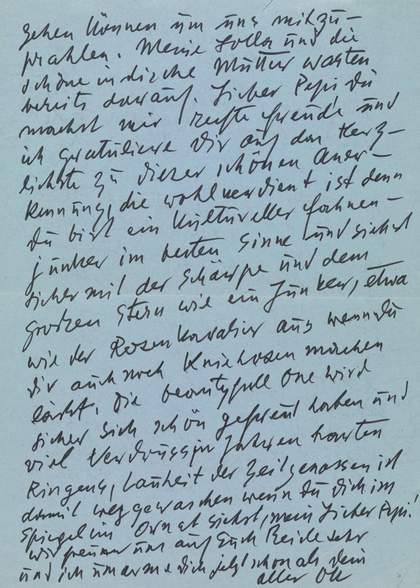 gehen können um uns mitzu-
prahlen. Meine Lolla und die
schöne indische Mutter warten
bereits darauf. Lieber Pepi du
machst mir rechte freude und
ich gratuliere Dir auf das Herz-
lichste zu dieser schönen Aner-
kennung, die wohlverdient ist denn
du bist ein Kultureller fahnen-
junker im besten Sinne und siehst
sicher mit der Schärpe und dem
großen Stern wie ein Junker, etwa
wie der Rosenkavalier aus wenn du
dir auch noch Kniehosen machen
läßt. Die beautyfull One wird
sicher sich schön gefreut haben und
viel Verdruss in Jahren harten
Ringens, Lauheit der Zeitgenossen ist
damit weggewaschen wenn du dich im
Spiegel im Ornat siehst, mein Lieber Pepi!
wir freuen uns auf Euch Beide sehr
und ich umarme dich jetzt schon als dein
alter OK